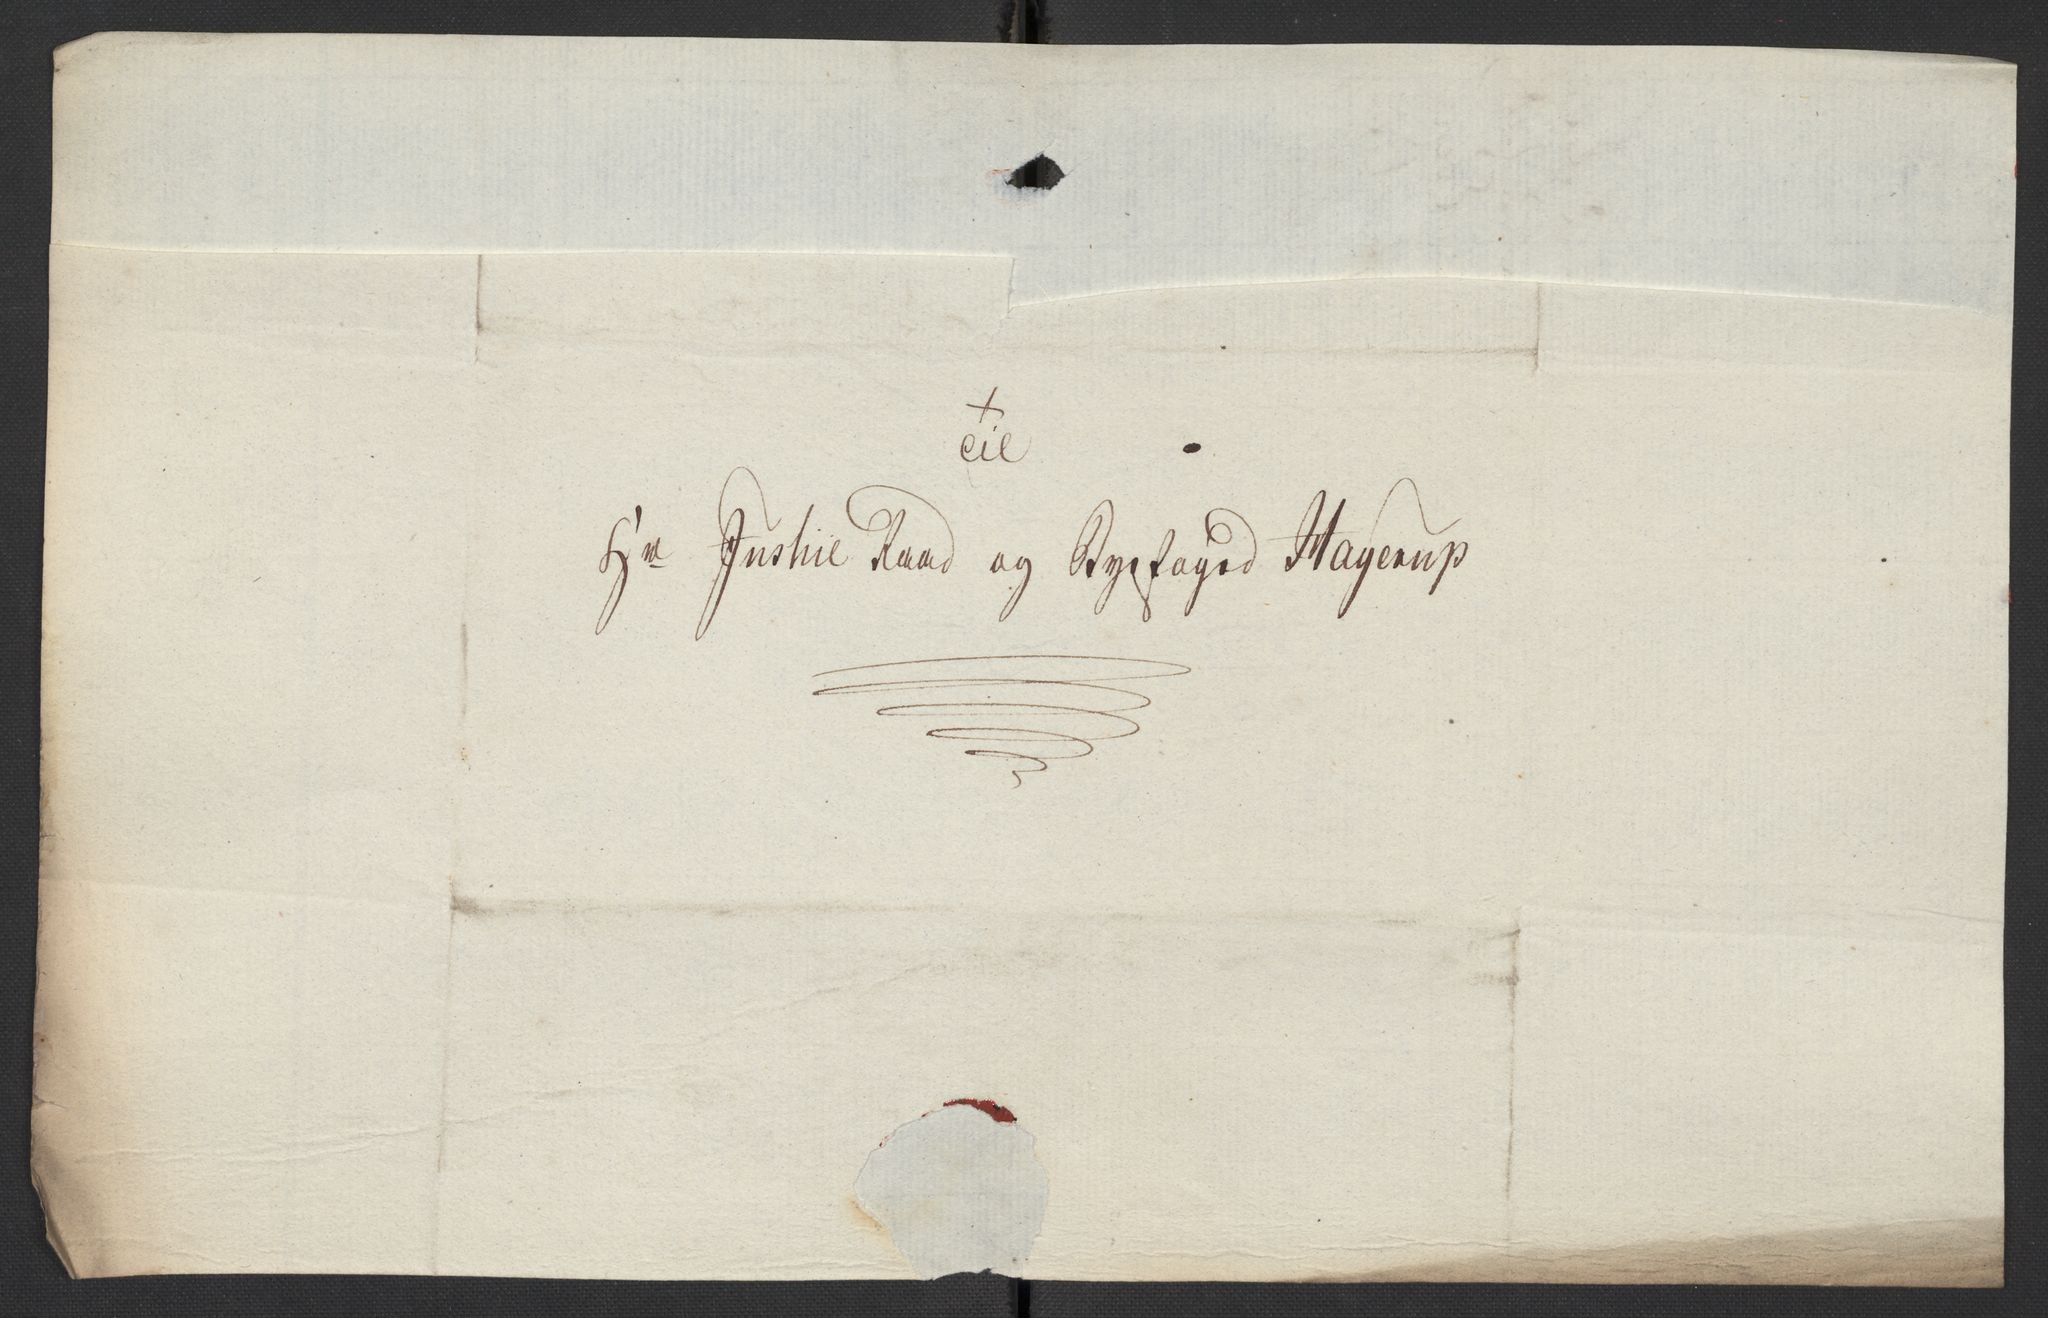 +
Til
Hr Justie Raad og Byefoged Hagerup